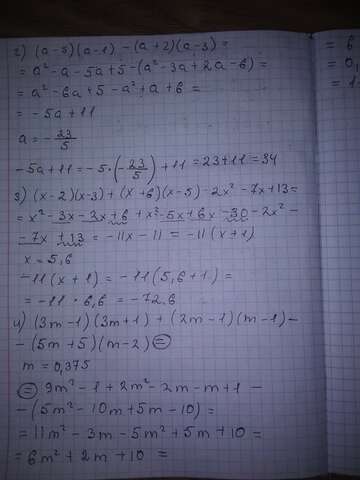 2) (a-5)(a-1) -(a+2)(a-3) =
= a² -a -5a +5 -(a² -3a +2a -6) =
= a² -6a +5 -a² +a +6 =
= -5a +11
a = -23/5
-5a +11 = -5·(-23/5) +11 = 23+11 = 34
3) (x-2)(x-3) + (x+6)(x-5) - 2x² -7x +13 =
= x² -3x -2x +6 + x² -5x +6x -30 -2x² -
-7x +13 = -11x -11 = -11(x+1)
x = 5,6
-11(x+1) = -11(5,6+1) =
= -11 · 6,6 = -72,6
4) (3m-1)(3m+1) + (2m-1)(m-1) -
- (5m+5)(m-2) =
m = 0,375
= 9m² -1 +2m² -2m -m +1 -
- (5m² -10m +5m -10) =
= 11m² -3m -5m² +5m +10 =
= 6m² +2m +10 =
= 6
= 0,
= 1